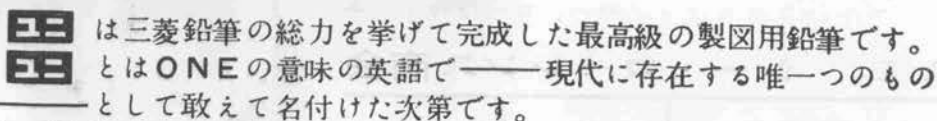 ユニ は三菱鉛筆の総力を挙げて完成した最高級の製図用鉛筆です。
ユニ とはＯＮＥの意味の英語で――現代に存在する唯一つのもの
――として敢えて名付けた次第です。